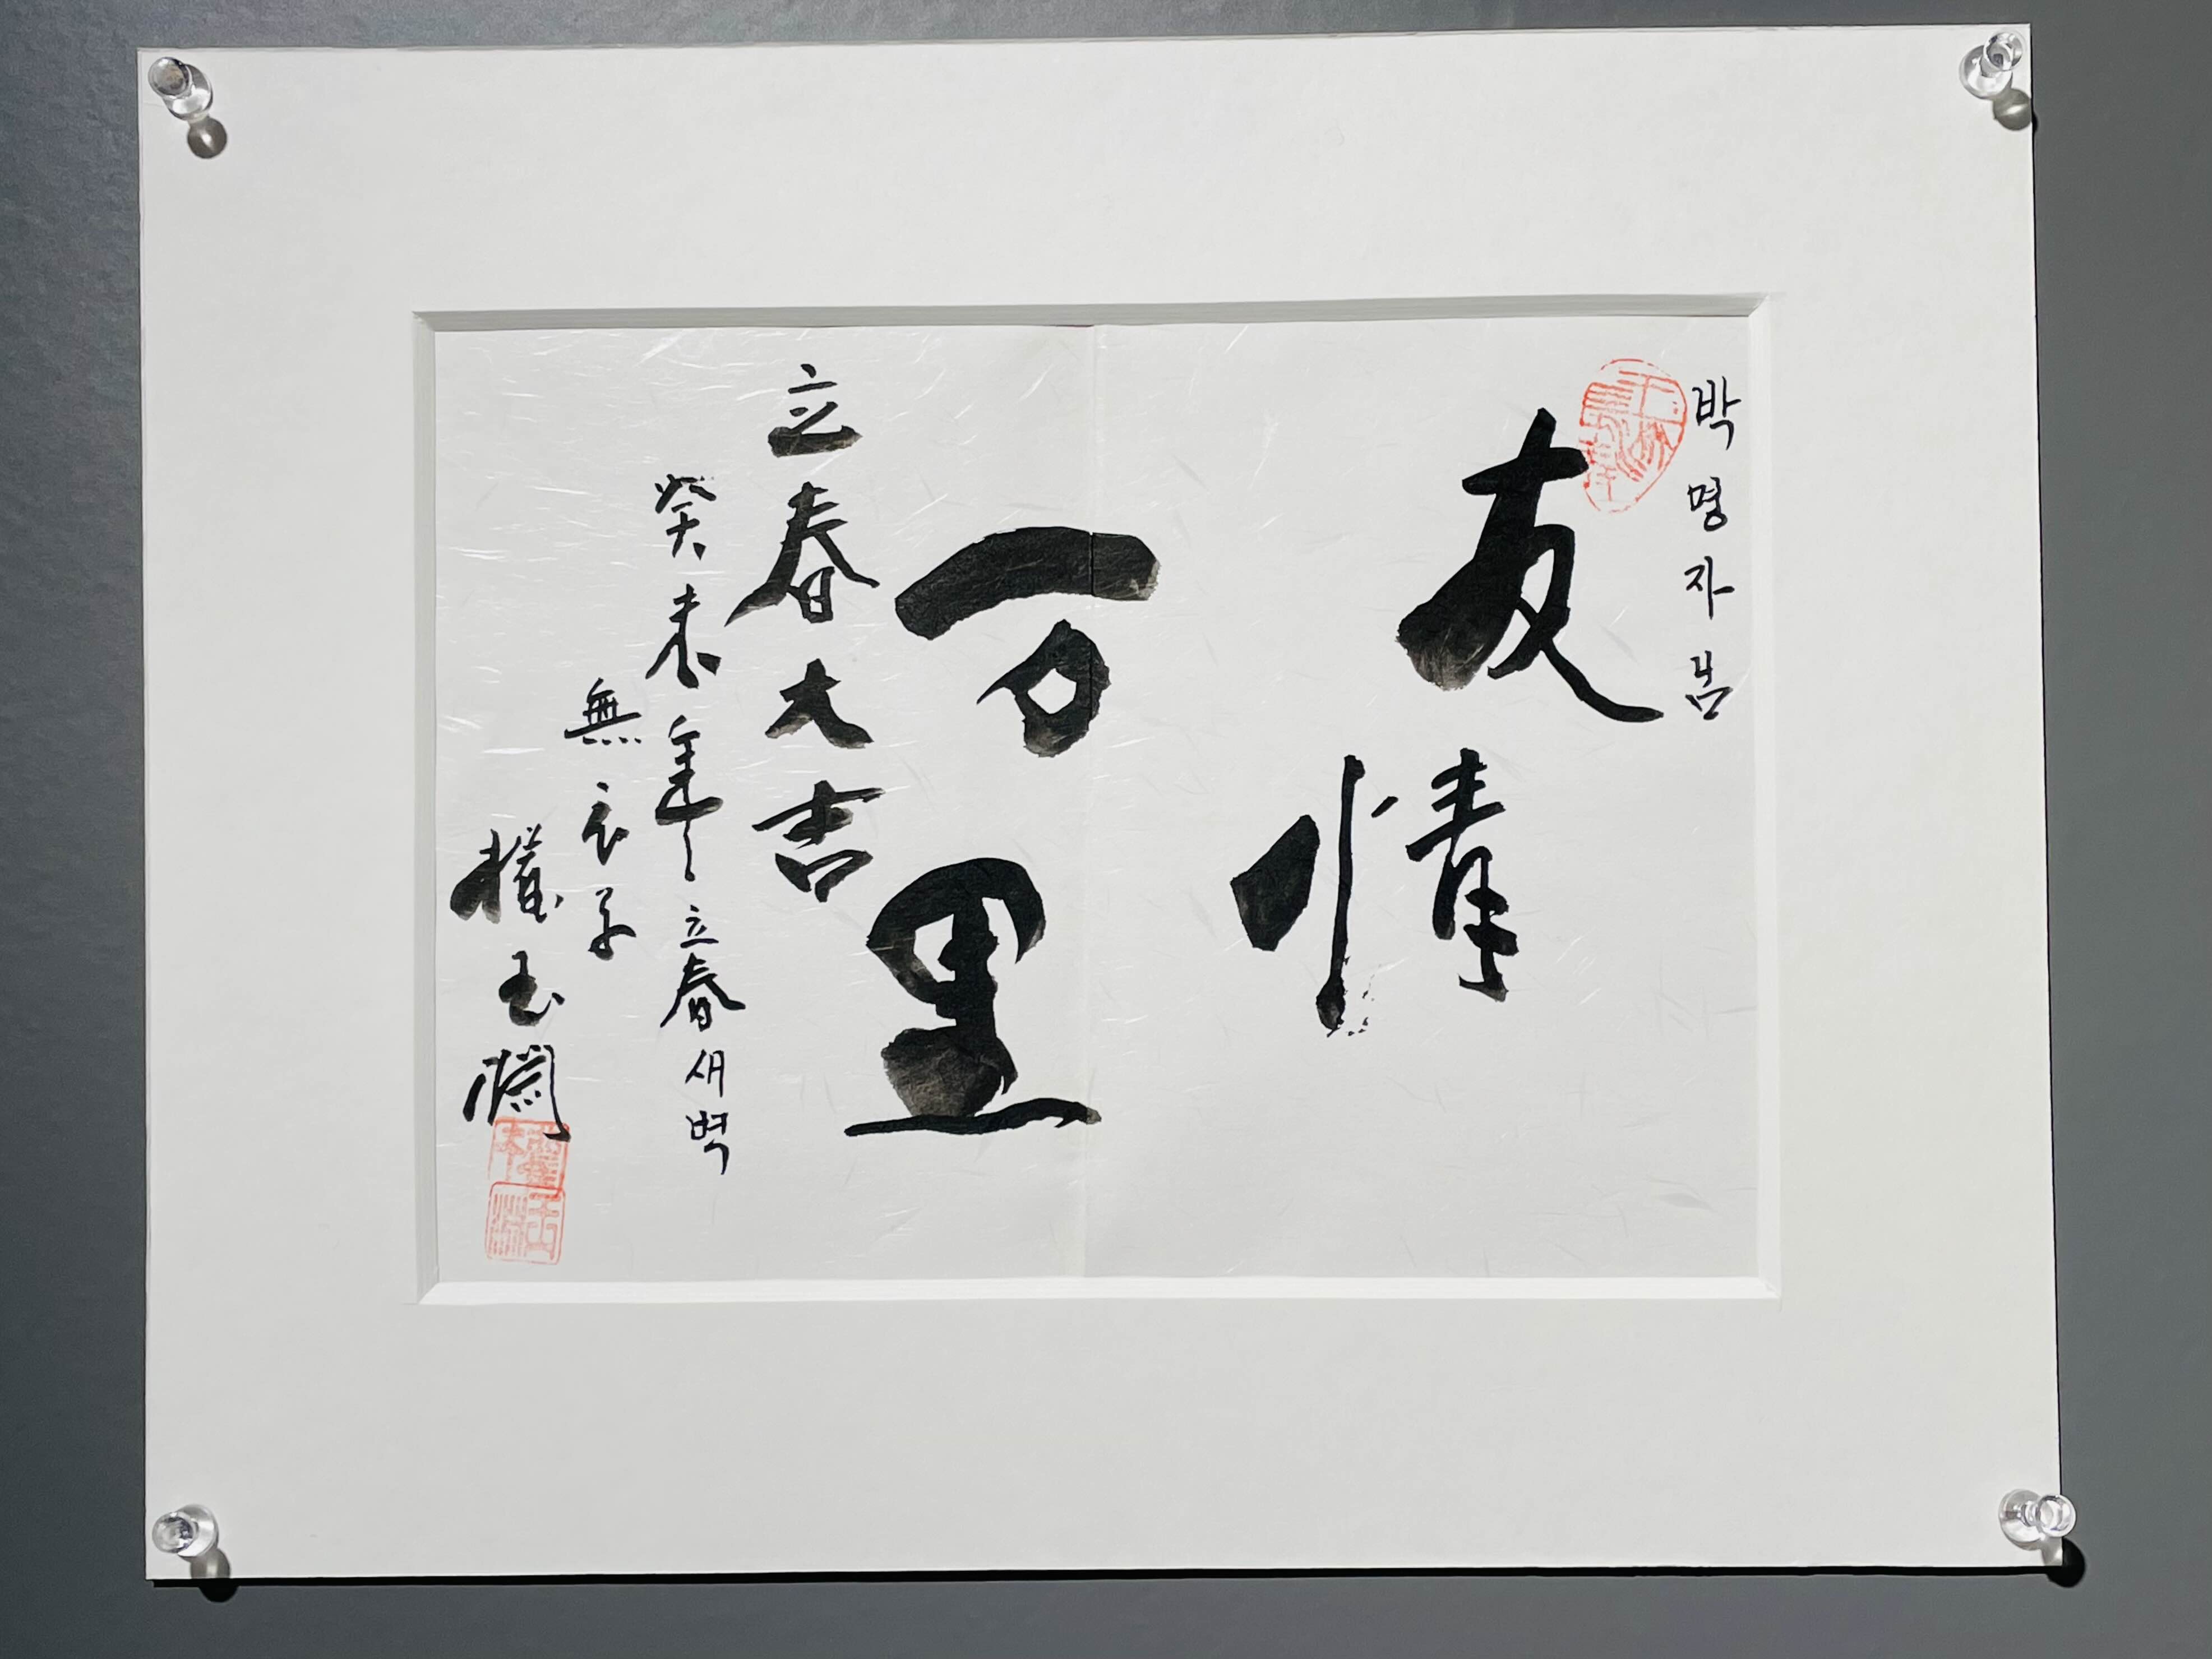 박명자님
友情
万里
立春大吉
癸未年 立春 새벽
無衣子
權玉淵